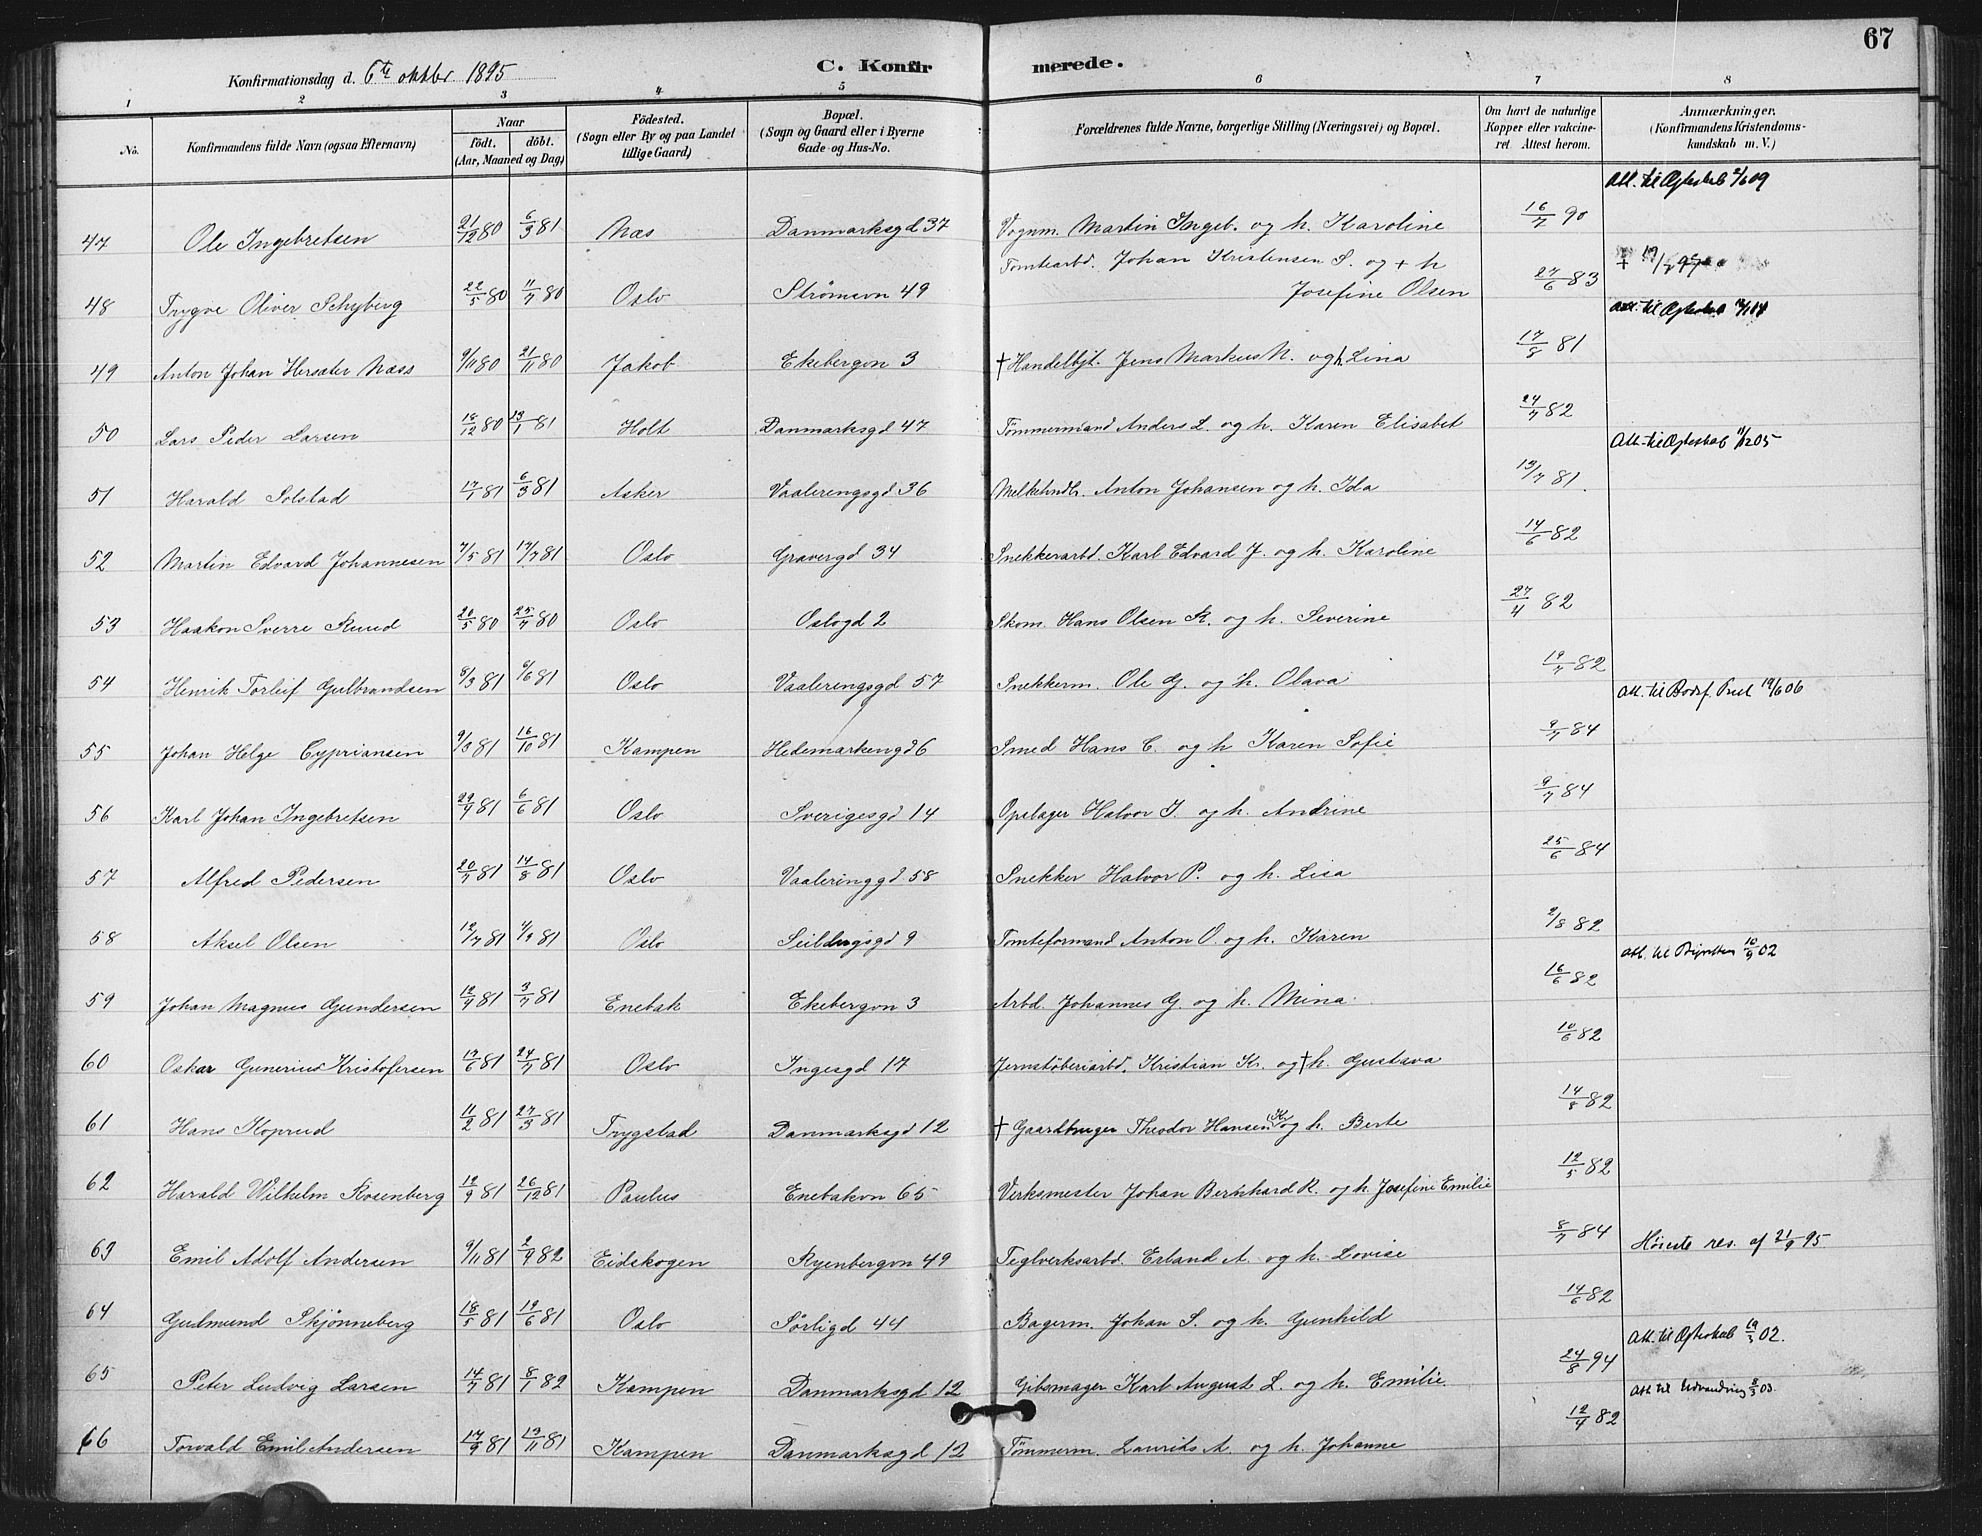 67
Konfirmationsdag d. 6te oktbr 1895 C. Konfir merede.
1 2 3 4 5 6 7 8
No. Konfirmandens fulde Navn (ogsaa Efternavn) Naar födt. döbt. (Aar, Maaned og Dag) Födested. (Sogn eller By og paa Landet tillige Gaard) Bopæl. (Sogn og Gaard eller i Byerne Gade og Hus-No. Forældrenes fulde Navne, borgerlige Stilling (Næringsvei) og Bopæl. Om havt de naturlige Kopper eller vakcineret. Attest herom. Anmærkninger. (Konfirmandens Kristendomskundskab m. V.)
Att. til Ægteskab 2/6 09
47 Ole Ingebretsen 21/12 80 6/3 81 Næs Danmarksgd 37 Vognm. Martin Ingeb. og h. Karoline 16/7 90
48 Trygve Oliver Schyberg 22/5 80 11/7 80 Oslo Strømsvn 49 Tomtearbd. Johan Kristensen S. og + h Josefine Olsen 27/6 83 + 19/
Att. til Ægteskab
49 Anton Johan Hersæter Næss 9/11 80 21/11 80 Jakob Ekebergvn 3 † Handelbjt. Jens Markus N. og h. Lina 17/8 81
50 Lars Peder Larsen 18/12 80 23/1 81 Holt Danmarksgd 47 Tømmermand Anders L. og h. Karen Elisabet 24/7 82
Att. til Ægteskab 11/12 05
51 Harald Solstad 17/1 81 6/3 81 Asker Vaalerengsgd 36 Melkehndlr. Anton Johansen og h. Ida 13/7 81.
52 Martin Edvard Johannesen 7/5 81 17/7 81 Oslo Gravergd 34 Snekkerarbd. Karl Edvard J. og h. Karoline 14/6 82
53 Haakon Sverre Ruud 20/5 80 25/7 80 Oslo Oslogd 2 Skom. Hans Olsen R. og h. Severine 27/4 82
54 Henrik Torleif Gulbrandsen 8/3 81 6/6 81 Oslo Vaalerengsgd 57 Snekkerm. Ole G. og h. Olava 19/7 82
Att. til Bodsf. Præst 19/6 06
55 Johan Helge Cypriansen 9/8 81 16/10 81 Kampen Hedemarkengd 6 Smed Hans C. og h Karen Sofie 9/7 84
56 Karl Johan Ingebretsen 29/4 81 6/6 81 Oslo Sverigesgd 14 Opslager Halvor I. og h. Andrine 9/7 84
57 Alfred Pedersen 20/7 81 14/8 81 Oslo Vaaleringgd 58 Snekker Halvor P. og h. Lisa 25/6 84
58 Aksel Olsen 12/7 81 4/9 81 Oslo Seildugsgd 9 Tomteformand Anton O. og h. Karen 2/8 82
Att. til Byretten 10/9 02
59 Johan Magnus Gundersen 12/4 81 3/7 81 Enebak Ekebergvn 3 Arbd. Johannes G. og h. Mina. 16/6 82
60 Oskar Gunerius Kristofersen 17/6 81 24/7 81 Oslo Ingesgd 17 Jernstøberiarbd. Kristian K. og † h. Gustava 10/6 82
61 Hans Koprud 11/2 81 27/3 81 Trygstad Danmarksgd 12 † Gaardbruger Theodor Hansen K. og h. Berte 14/8 82
62 Harald Wilhelm Rosenberg 12/9 81 26/12 81 Paulus Enebakvn 65 Verksmester Johan Bernhard R. og h. Josefine Emilie 12/5 82
63 Emil Adolf Andersen 9/11 81 2/4 82 Eidskogen Ryenbergvn 49 Teglverksarbd. Erland A. og h. Lovise 8/7 84 Høieste res. af 21/9 95.
64 Gudmund Skjønneberg 18/5 81 19/6 81 Oslo Sørligd 44 Bagerm. Johan S. og h. Gunhild 14/6 82
Att. til Ægteskab 19/3 02.
65 Peter Ludvig Larsen 14/7 81 8/1 82 Kampen Danmarksgd 12 Gibsmager Karl August L. og h. Emilie 24/8 94
Att. til Udvandring 8/3 03.
66 Torvald Emil Andersen 17/9 81 13/11 81 Kampen Danmarksgd 12 Tømmerm. Laurits A. og h. Johanne 12/4 82